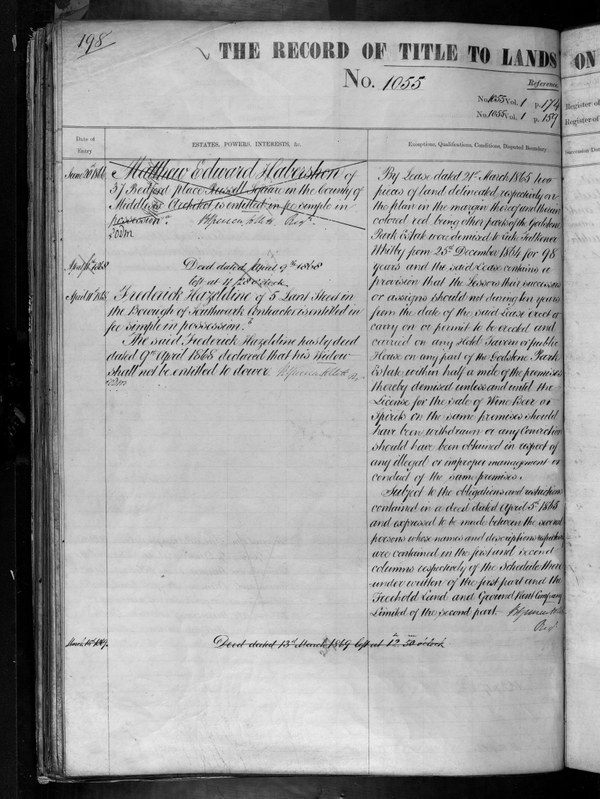 198
THE RECORD OF TITLE TO LANDS
ON
No. 1055
Reference.
No. 1055 Vol. 1 p. 174
No. 1055 Vol. 1 p. 157
Register of
Register of
Date of
Entry
ESTATES, POWERS, INTERESTS, &c.
Exceptions, Qualifications, Conditions, Disputed Boundary
June 30th
Matthew Edward Habershon of
37 Bedford place Russell Square in the County of
Middlesex Architect is entitled in fee simple in
possession.
April 11th 1868
Deed dated April 9th 1868
left at 11 o'clock
April 11th 1868
Frederick Hazeldine of 5 Lant Street in
the Borough of Southwark Contractor is entitled in
fee simple in possession.
The said Frederick Hazeldine has by deed
dated 9th April 1868 declared that his Widow
shall not be entitled to dower.
By Lease dated 21st March 1865 two
pieces of land delineated respectively on
the plan in the margin thereof and thereon
colored red being other parts of the Godstone
Park Estate were demised to Luke Faulkener
Whitby from 25th December 1864 for 98
years and the said Lease contains a
provision that the Lessors their successors
or assigns should not during ten years
from the date of the said Lease erect or
carry on or permit to be erected and
carried on any Hotel Tavern or public
House on any part of the Godstone Park
Estate within half a mile of the premises
thereby demised unless and until the
License for the sale of Wine Beer or
Spirits on the same premises should
have been withdrawn or any Conviction
should have been obtained in respect of
any illegal or improper management or
conduct of the same premises.
Subject to the obligations and restrictions
contained in a deed dated April 5th 1865
and expressed to be made between the several
persons whose names and descriptions respectively
are contained in the first and second
columns respectively of the Schedule there
under written of the first part and the
Freehold Land and Ground Rent Company
Limited of the second part.
Regr
Deed dated 13th March 1869 left at 12.30 o'clock